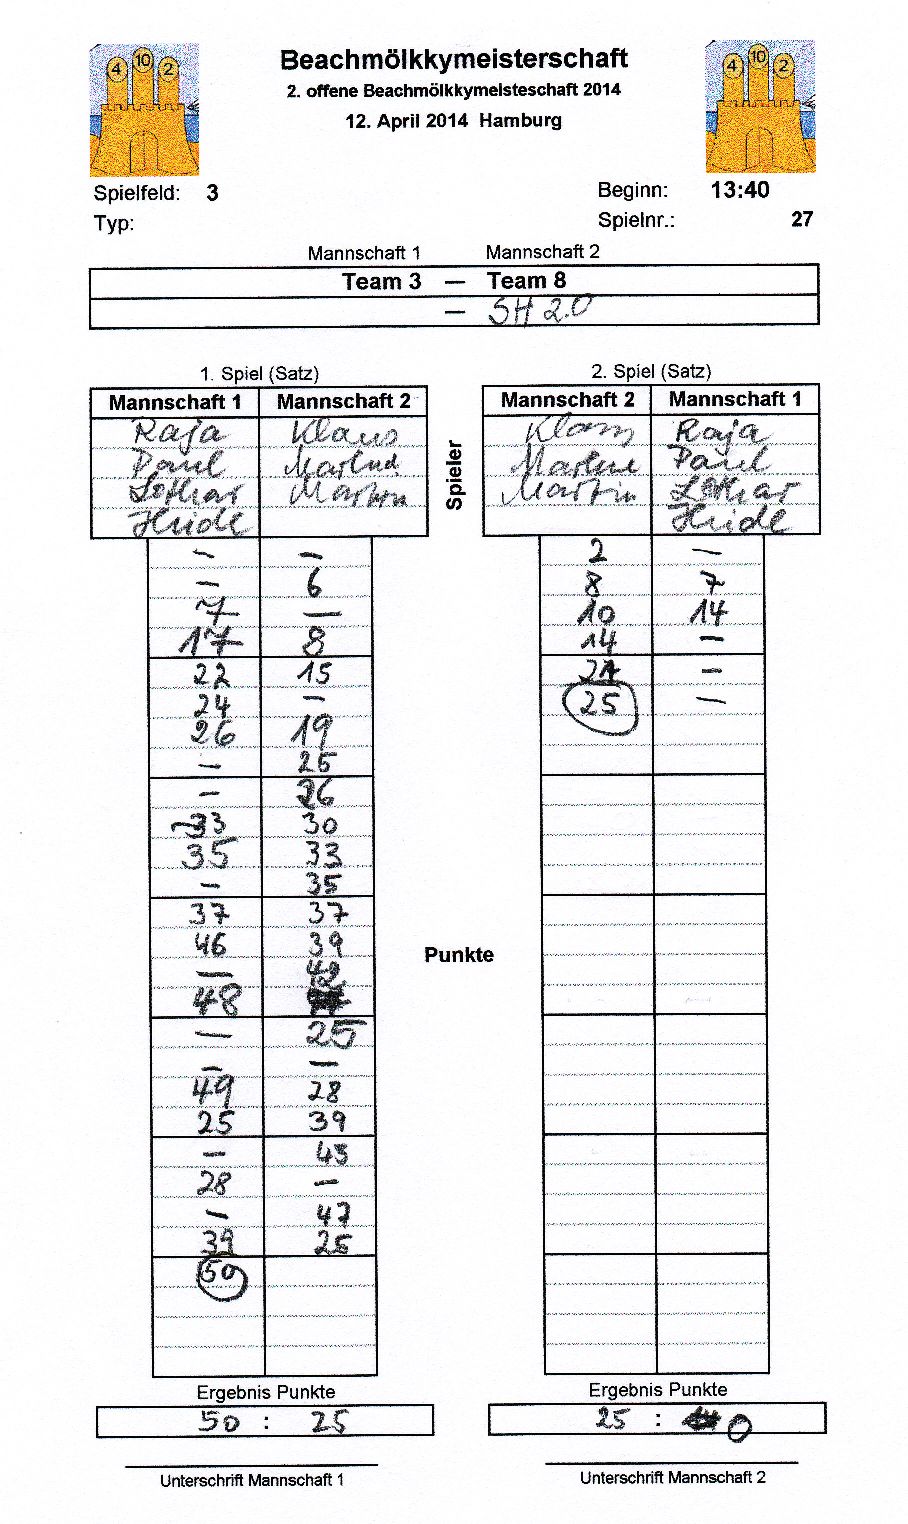 4 10 2
4 10 2
Beachmölkkymeisterschaft
2. offene Beachmölkkymeisteschaft 2014
12. April 2014 Hamburg
Spielfeld: 3
Beginn: 13:40
Typ:
Spielnr.: 27
Mannschaft 1 Mannschaft 2
Team 3 — Team 8
— SH 2.0
1. Spiel (Satz)
Mannschaft 1 Mannschaft 2
Raja Klaus
Paul
Lothar Martin
Heide
– –
– 6
7 –
17 8
22 15
24 –
26 19
– 25
– 26
33 30
35 33
– 35
37 37
46 39
– 42
48
– 25
– –
49 28
25 39
– 45
28 –
– 47
39 25
50
Ergebnis Punkte
50 : 25
Unterschrift Mannschaft 1
Spieler
Punkte
2. Spiel (Satz)
Mannschaft 2 Mannschaft 1
Klaus Raja
Paul
Martin Lothar
Heide
2 –
8 7
10 14
14 –
21 –
25 –
Ergebnis Punkte
25 : 0
Unterschrift Mannschaft 2